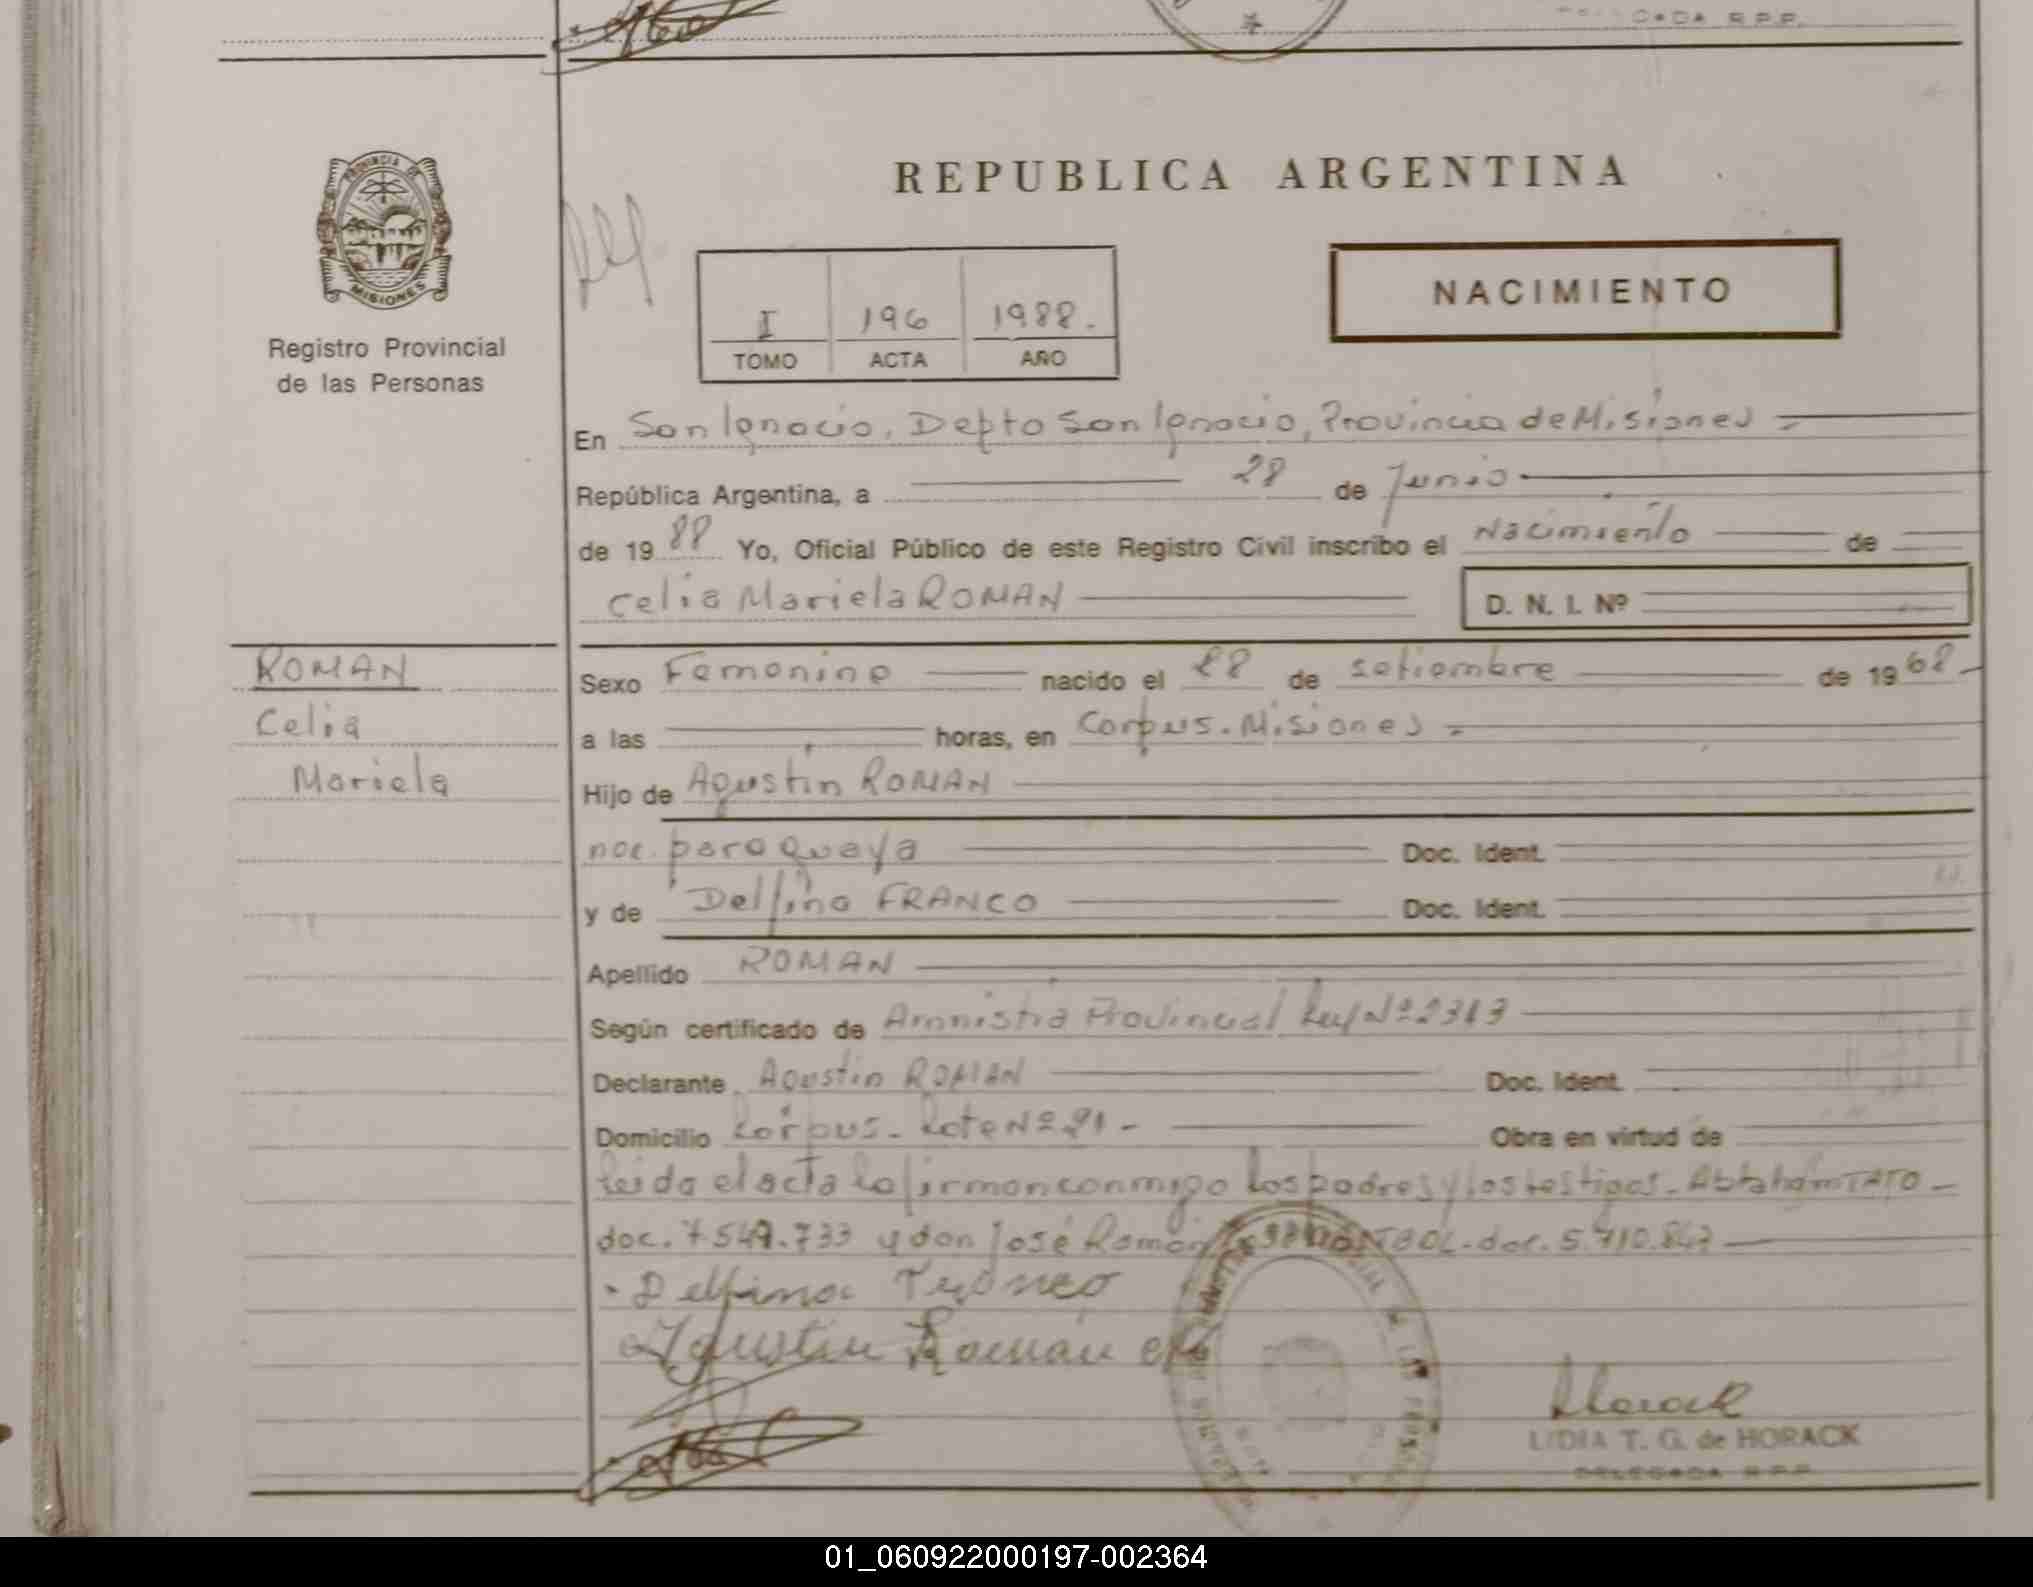 PROVINCIA DE
MISIONES
Registro Provincial
de las Personas
REPUBLICA ARGENTINA
I 196 1988.
TOMO ACTA AÑO
NACIMIENTO
En San Ignacio, Depto San Ignacio, Provincia de Misiones
República Argentina, a 28 de Junio
de 1988 Yo, Oficial Público de este Registro Civil inscribo el Nacimiento de
Celia Mariela ROMAN D. N. I. Nº
ROMAN
Celia
Mariela
Sexo Femenino nacido el 28 de setiembre de 1968
a las horas, en Corpus. Misiones
Hijo de Agustin ROMAN
nac. paraguaya Doc. Ident.
y de Delfina FRANCO Doc. Ident.
Apellido ROMAN
Según certificado de Amnistia Provincial Ley Nº 2313
Declarante Agustin ROMAN Doc. Ident.
Domicilio Corpus - Lote Nº 21 - Obra en virtud de
leida el acta la firman conmigo los padres y los testigos. Abraham
doc. 7.549.733 y don José Ramon doc. 5.710.847
Delfina Franco
Agustin Roman
Horack
LIDIA T. G. de HORACK
DELEGADA R.P.P.
01_060922000197-002364